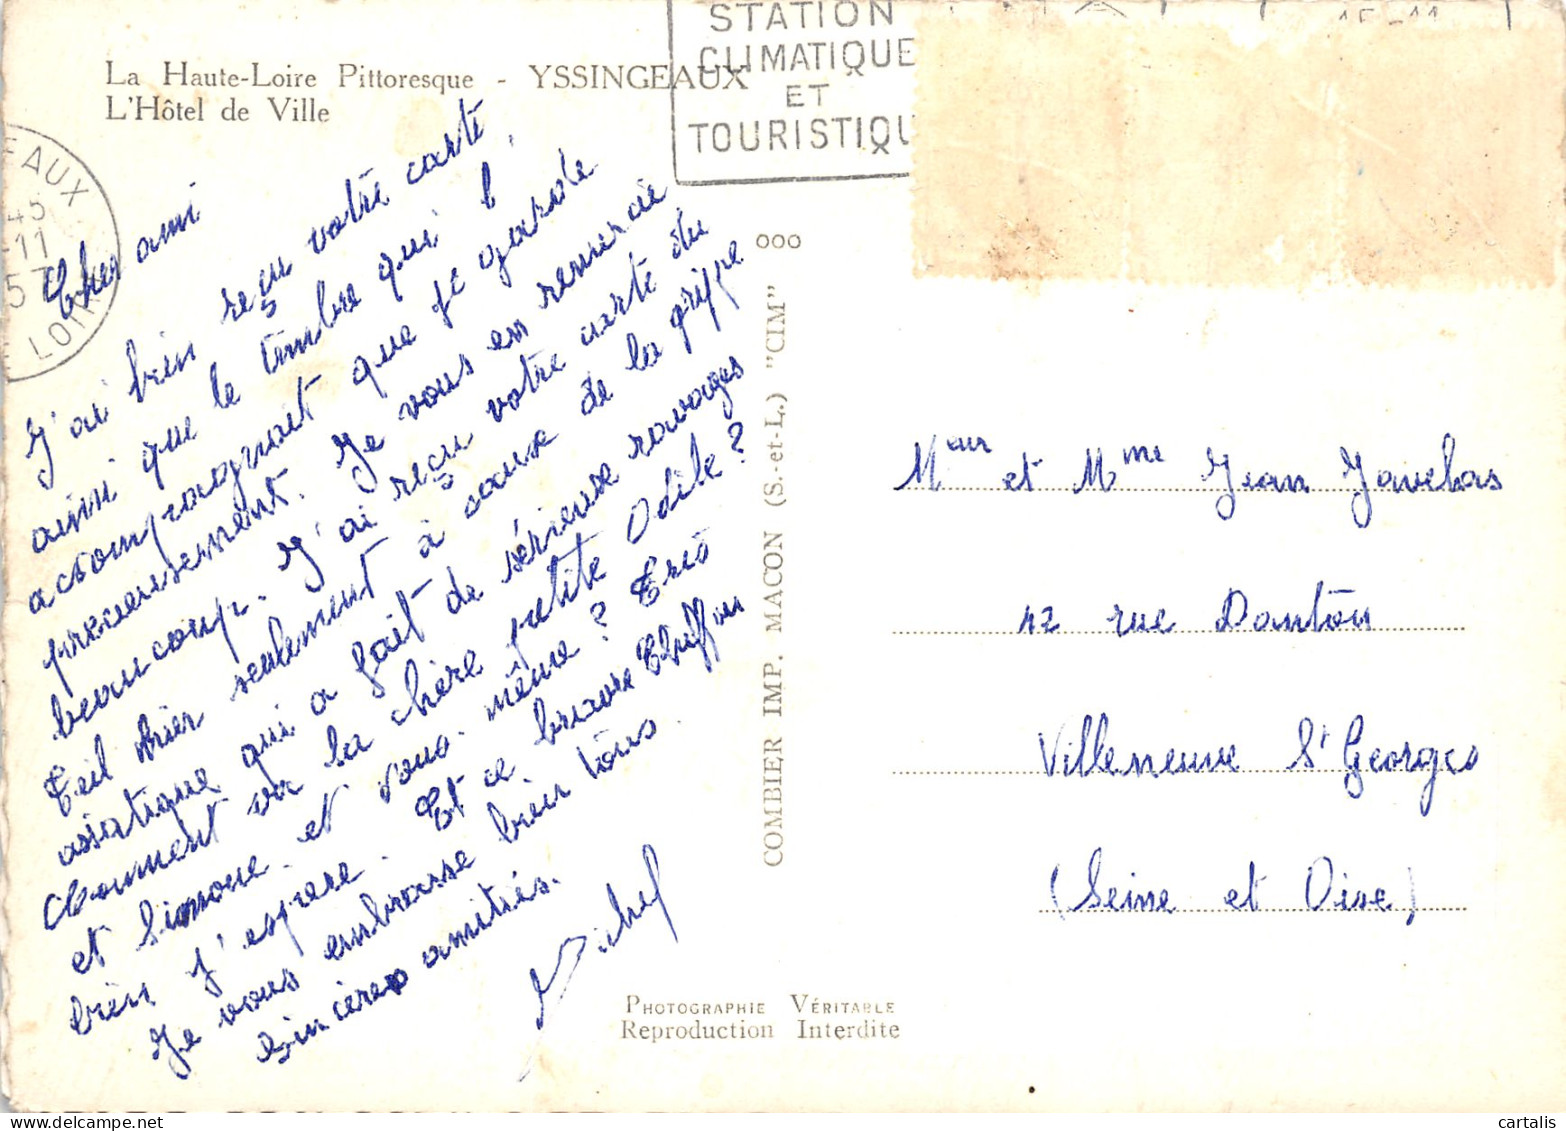 La Haute-Loire Pittoresque - YSSINGEAUX
L'Hôtel de Ville
STATION
CLIMATIQUE
ET
TOURISTIQU
15-11
EAUX
45
-11
5
LOIR
Cher ami
J'ai bien reçu votre carte,
ainsi que le timbre qui l'
accompagnait que je garde
précieusement. Je vous en remercie
beaucoup. J'ai reçu votre carte du
Teil hier seulement à cause de la grippe
asiatique qui a fait de sérieuse ravages
Comment va la chère petite Odile ?
et Simone et vous même ? Très
bien j'espere. Et ce brave Chiffon
Je vous embrasse bien tous.
Sincères amitiés.
Michel
ooo
COMBIER IMP. MACON (S.-et-L.) "CIM"
PHOTOGRAPHIE VÉRITABLE
Reproduction Interdite
Meur et Mme Jean Javelas
42 rue Danton
Villeneuve St Georges
(Seine et Oise)
cartalis
www.delcampe.net